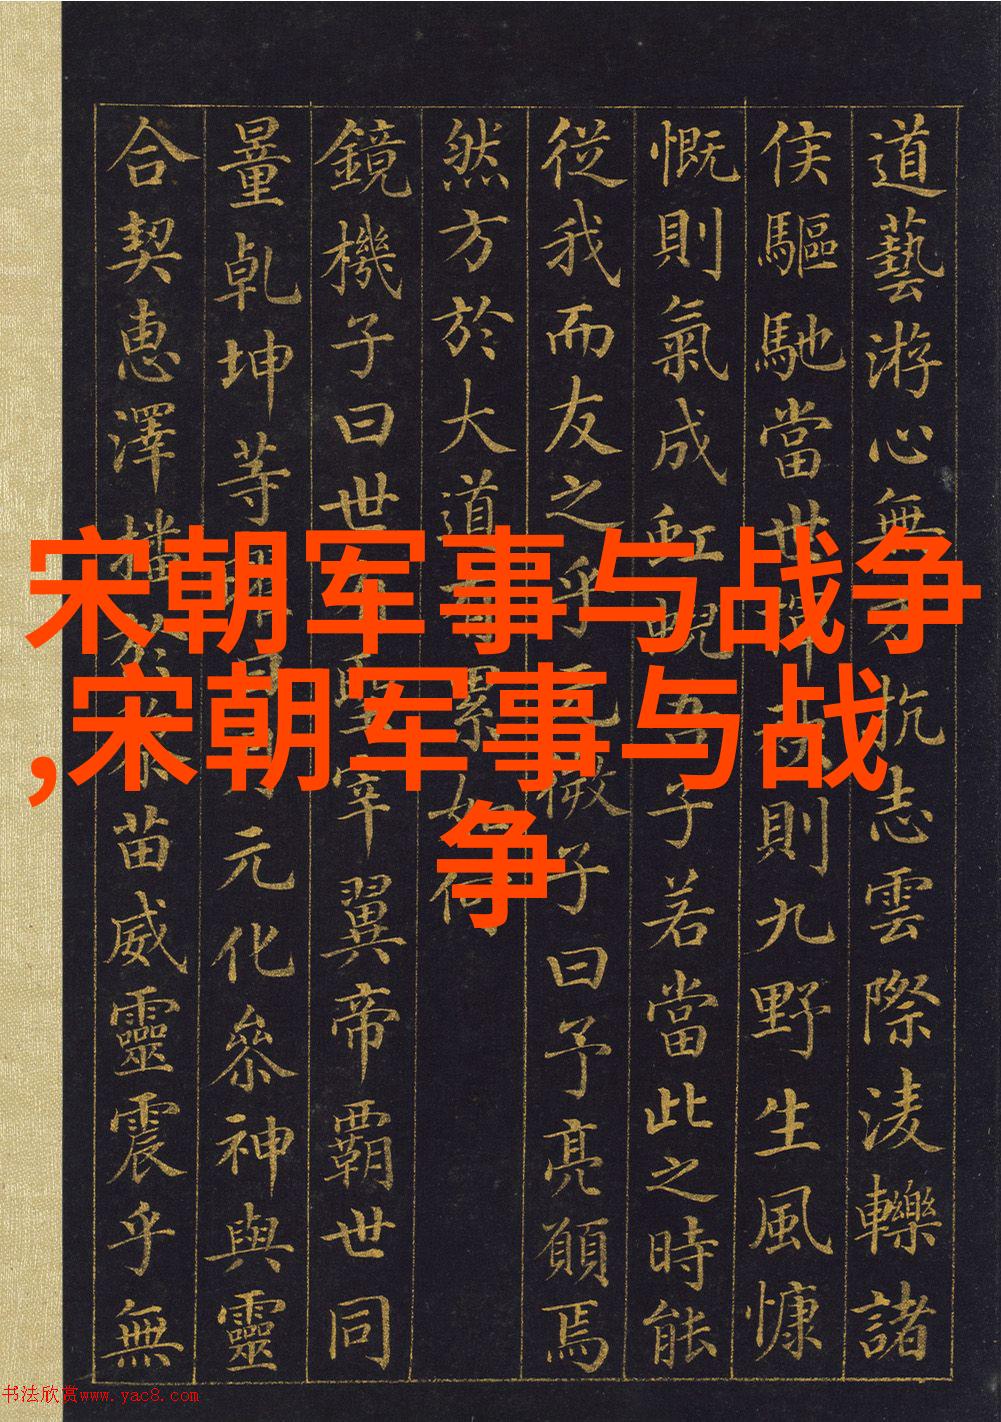 道藝游心無抗志雲際淩轢諸
侯驅馳當世則九野生風慷
慨則氣成虹蜺吾子若當此之時能
從我而友之乎元微子曰予亮願焉
然方於大道累如何
鏡機子曰世聖宰翼帝霸世同
量乾坤等元化參神與靈
合契惠澤播於苗威靈震乎無
宋朝军事与战争
,宋朝军事与战
争
书法欣赏www.yac8.com